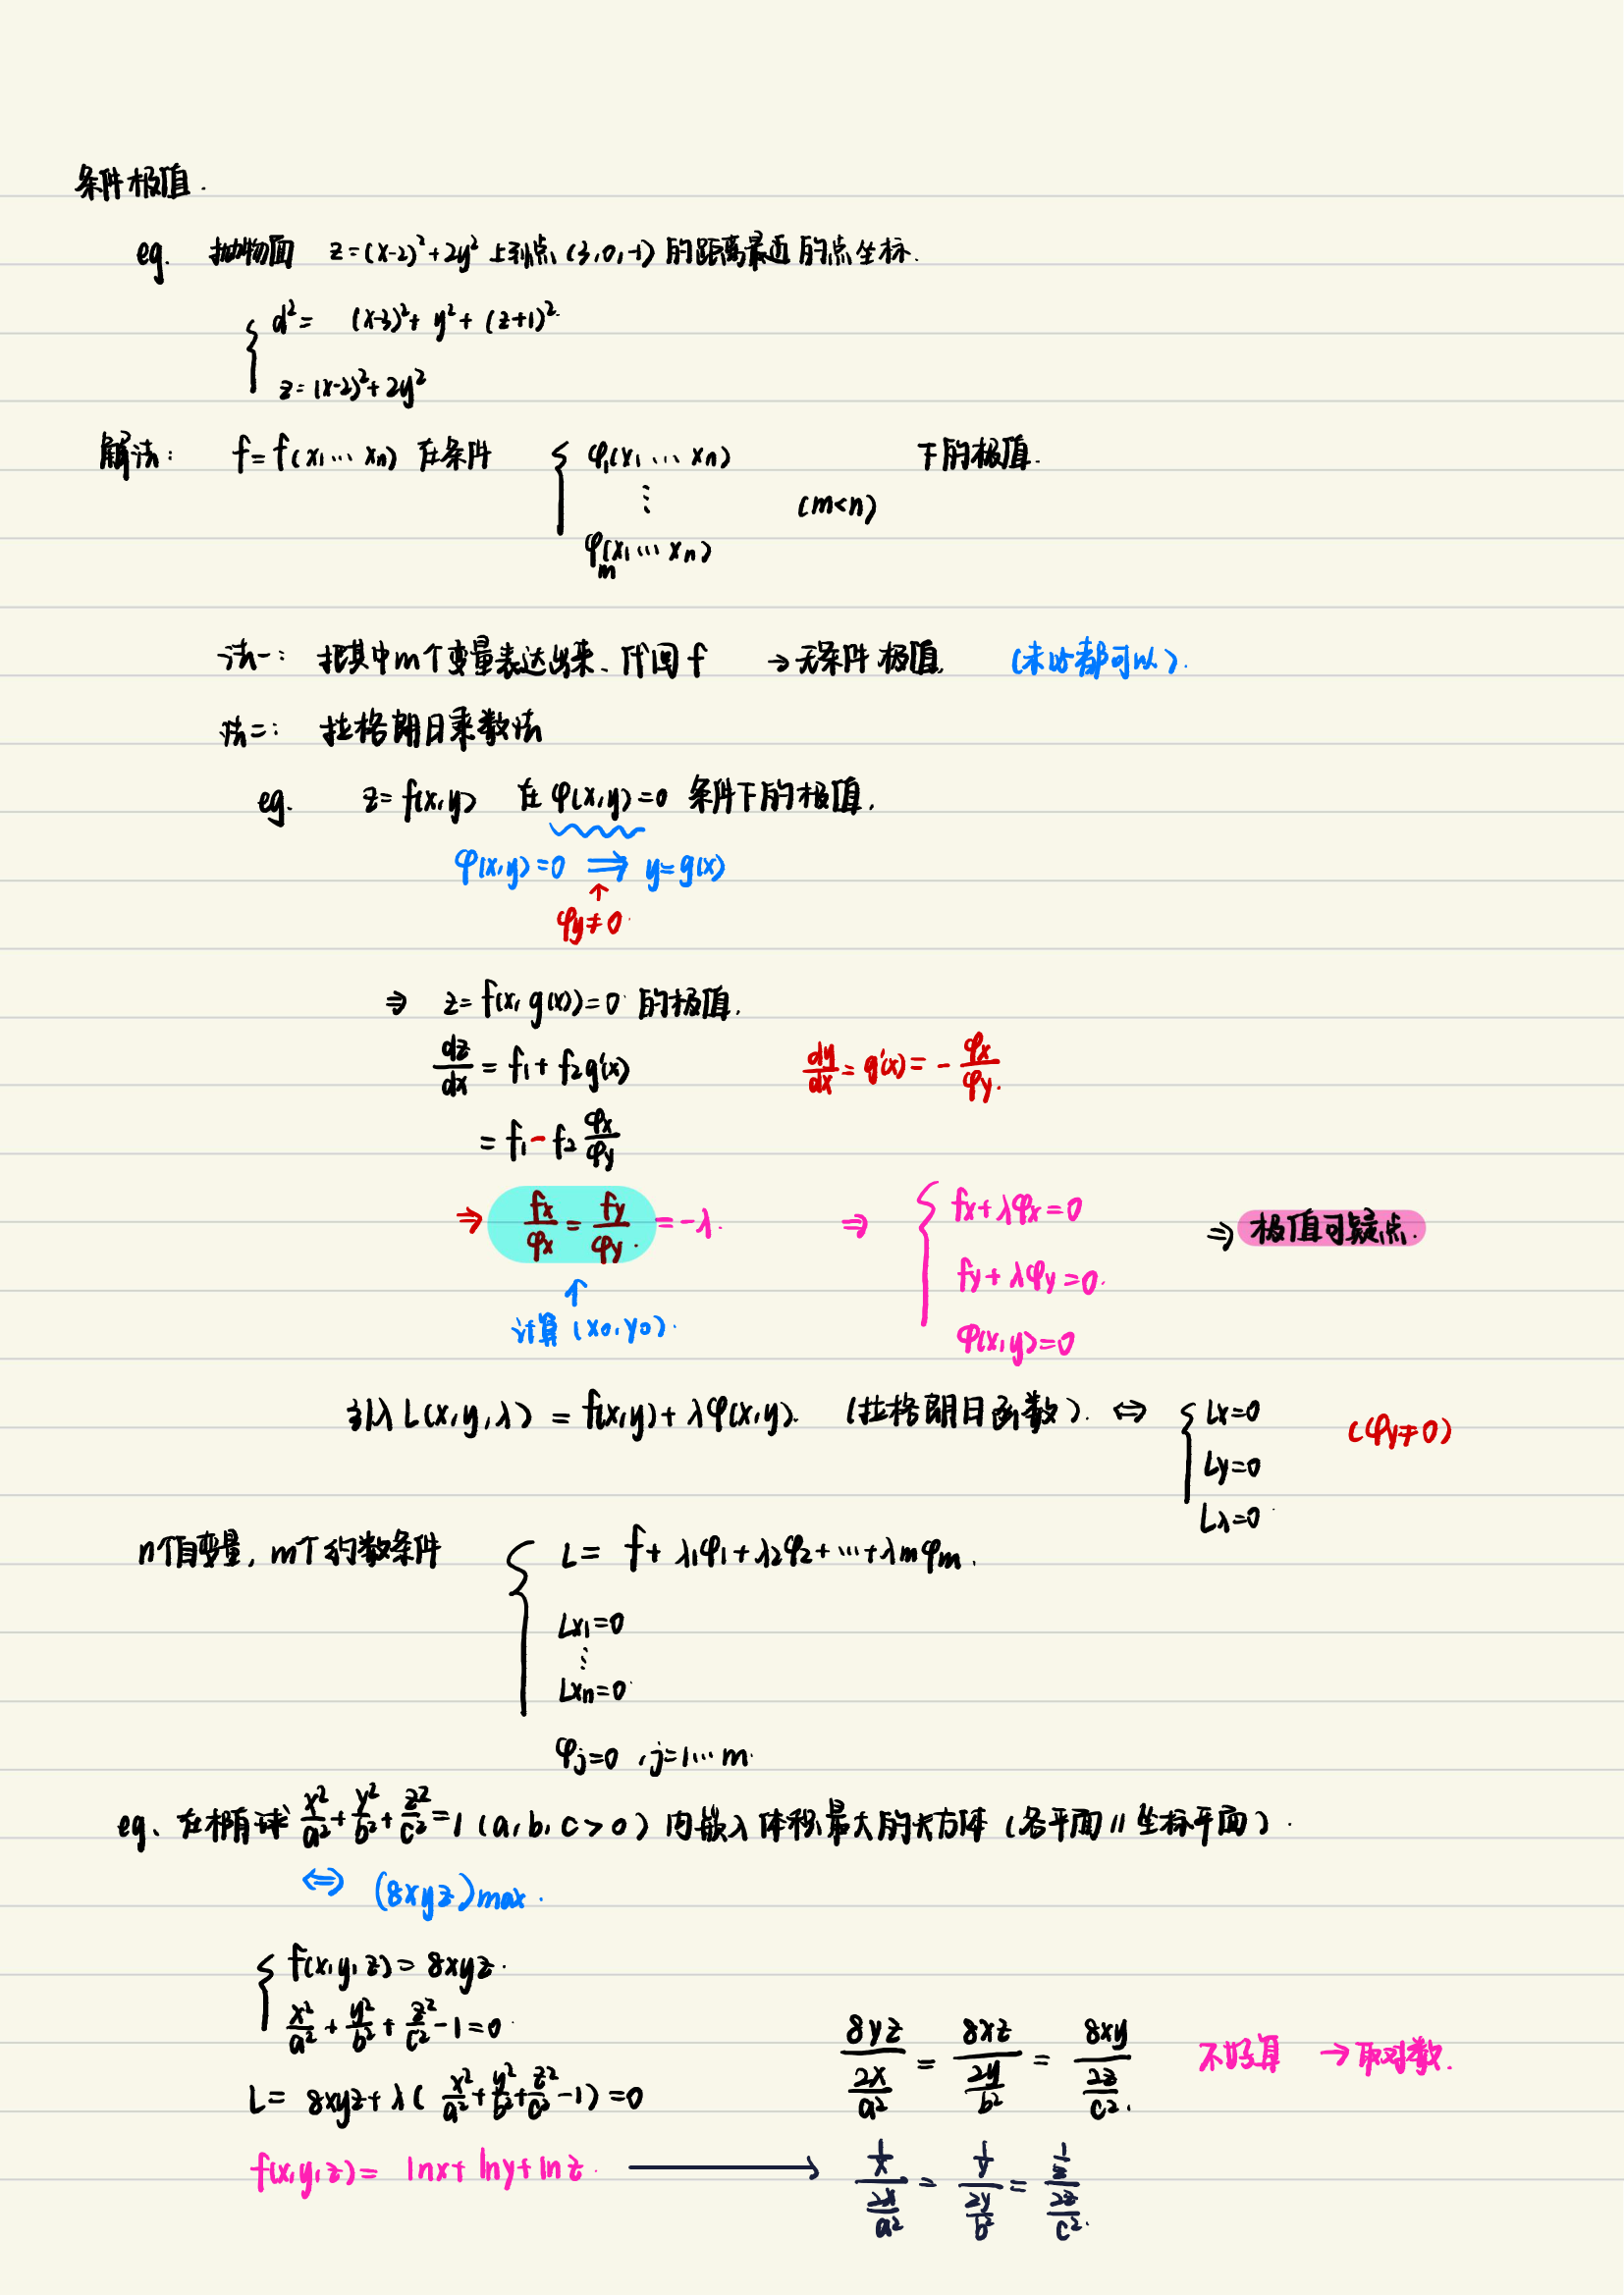 条件极值.
eg. 抛物面 z=(x-2)²+2y² 上到点(3,0,-1)的距离最近的点坐标.
{ d²= (x-3)²+y²+(z+1)²
z=(x-2)²+2y²
解法: f=f(x₁…xₙ) 在条件 { φ₁(x₁…xₙ) 下的极值.
⋮ (m<n)
φₘ(x₁…xₙ)
法一: 把其中m个变量表达出来、代回f →无条件极值 (未必都可以).
法二: 拉格朗日乘数法
eg. z=f(x,y) 在φ(x,y)=0 条件下的极值.
φ(x,y)=0 ⇒ y=g(x)
↑
φy≠0
⇒ z=f(x,g(x))=0 的极值.
dz/dx = f₁+f₂g'(x) dy/dx=g'(x)=-φx/φy.
= f₁-f₂ φx/φy
⇒ fx/φx = fy/φy =-λ. ⇒ { fx+λφx=0 ⇒ 极值可疑点.
fy+λφy=0.
↑
计算(x₀,y₀). φ(x,y)=0
引入L(x,y,λ) = f(x,y)+λφ(x,y). (拉格朗日函数). ⇔ { Lx=0 (φy≠0)
Ly=0
Lλ=0
n个自变量, m个约数条件 { L= f+λ₁φ₁+λ₂φ₂+…+λmφm.
Lx₁=0
⋮
Lxn=0
φj=0 ,j=1…m
eg、在椭球 x²/a²+y²/b²+z²/c²=1 (a,b,c>0) 内嵌入体积最大的长方体 (各平面//坐标平面).
⇔ (8xyz)max.
{ f(x,y,z)=8xyz.
x²/a²+y²/b²+z²/c²-1=0
8yz/(2x/a²) = 8xz/(2y/b²) = 8xy/(2z/c²). 不好算 →取对数.
L= 8xyz+λ(x²/a²+y²/b²+z²/c²-1)=0
f(x,y,z)= lnx+lny+lnz. → (1/x)/(2x/a²) = (1/y)/(2y/b²) = (1/z)/(2z/c²).